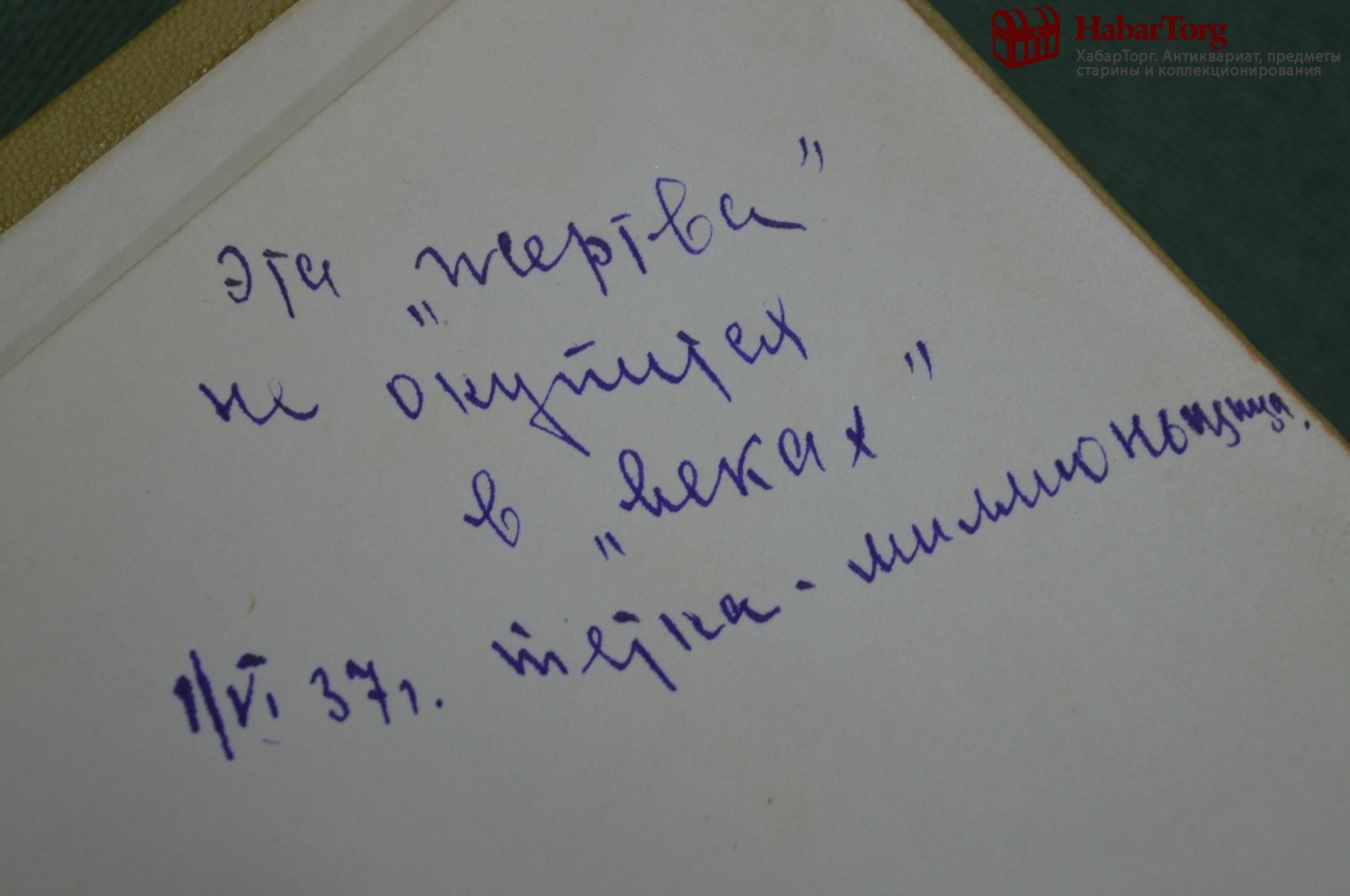 HabarTorg
ХабарТорг. Антиквариат, предметы
старины и коллекционирования
Эта „жертва”
не окупится
в „веках”
1/VI 37г. тетка-миллионьщица.